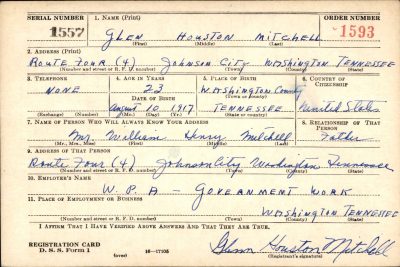 SERIAL NUMBER 1. NAME (Print) ORDER NUMBER
1557 GLEN HOUSTON MITCHELL 1593
(First) (Middle) (Last)
2. ADDRESS (Print)
ROUTE FOUR (4) JOHNSON CITY WASHINGTON TENNESSEE
(Number and street or R. F. D. number) (Town) (County) (State)
3. TELEPHONE 4. AGE IN YEARS 5. PLACE OF BIRTH 6. COUNTRY OF CITIZENSHIP
NONE 23 WASHINGTON County
DATE OF BIRTH (Town or county)
August 10 1917 TENNESSEE United States
(Exchange) (Number) (Mo.) (Day) (Yr.) (State or country)
7. NAME OF PERSON WHO WILL ALWAYS KNOW YOUR ADDRESS 8. RELATIONSHIP OF THAT PERSON
Mr. William Henry Mitchell Father
(Mr., Mrs., Miss) (First) (Middle) (Last)
9. ADDRESS OF THAT PERSON
Route Four (4) Johnson City Washington Tennessee
(Number and street or R. F. D. number) (Town) (County) (State)
10. EMPLOYER'S NAME
W. P. A - GOVERNMENT WORK
11. PLACE OF EMPLOYMENT OR BUSINESS
WASHINGTON TENNESSEE
(Number and street or R. F. D. number) (Town) (County) (State)
I AFFIRM THAT I HAVE VERIFIED ABOVE ANSWERS AND THAT THEY ARE TRUE.
REGISTRATION CARD
D. S. S. Form 1 16-17105 Glenn Houston Mitchell
(over) (Registrant's signature)